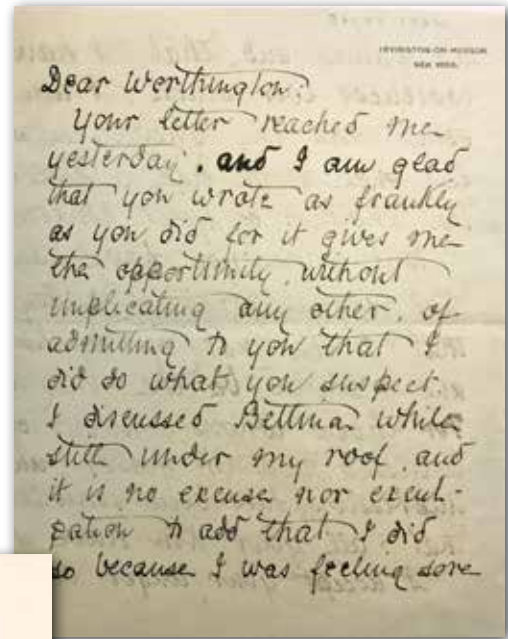 IRVINGTON-ON-HUDSON
NEW YORK
Dear Worthington:
Your letter reached me
yesterday, and I am glad
that you wrote as frankly
as you did for it gives me
the opportunity, without
implicating any other, of
admitting to you that I
did do what you suspect.
I discussed Bettina while
still under my roof, and
it is no excuse nor exculpation
to add that I did
so because I was feeling sore